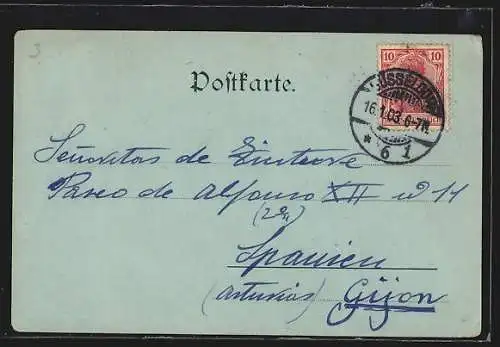 3
10 10
Postkarte.
DÜSSELDORF
16.1.03.6-7N.
* 6 1
Señoritas de
Paseo de Alfonso XII
Spanien
(Asturias) Gijon